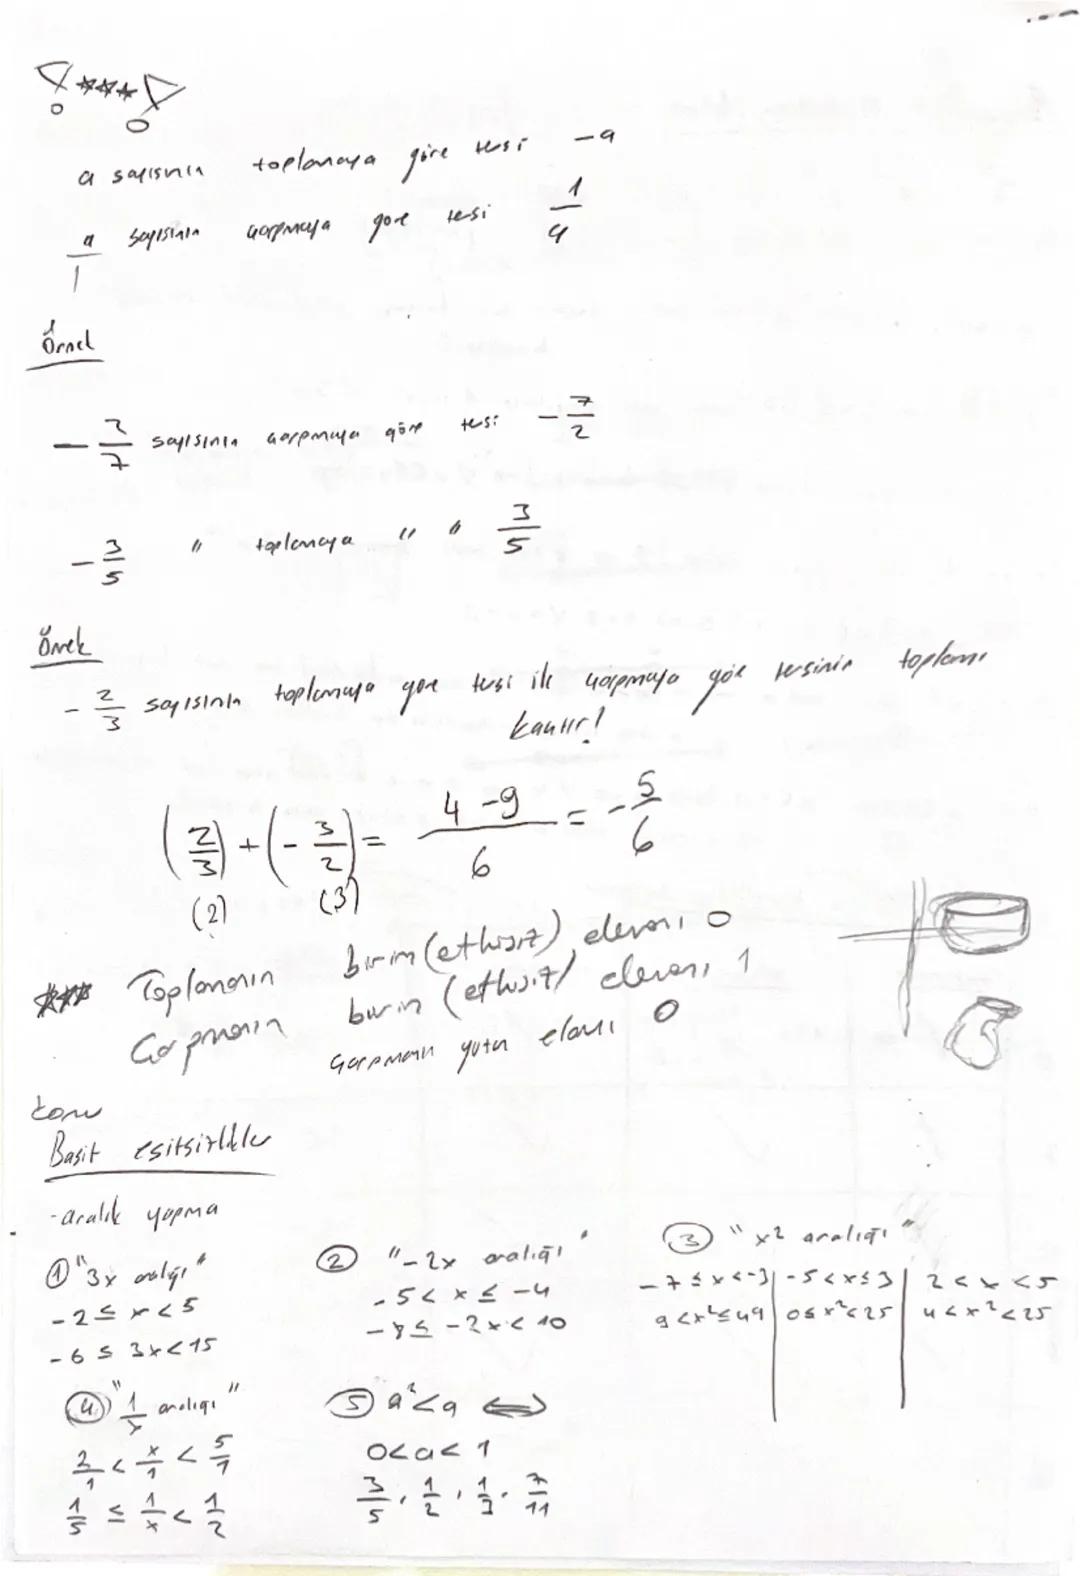 a sayısının toplamaya göre tersi -a
a/1 sayısının çarpmaya göre tersi 1/a
Örnek
-2/7 sayısının çarpmaya göre tersi -7/2
-3/5 " toplamaya " " 3/5
Örnek
-2/3 sayısının toplamaya göre tersi ile çarpmaya göre tersinin toplamı
kaçtır!
(2/3) + (-3/2) = 4-9/6 = -5/6
(2) (3)
*** Toplamanın birim (etkisiz) elemanı 0
Çarpmanın birim (etkisiz) elemanı 1
Çarpmanın yutan elamı 0
Konu
Basit eşitsizlikler
-aralık yapma
① "3x aralığı"
-2 ≤ x < 5
-6 ≤ 3x < 15
② "-2x aralığı"
-5 < x ≤ -4
-8 ≤ -2x < 10
③ "x² aralığı"
-7 ≤ x < -3 | -5 < x ≤ 3 | 2 < x < 5
9 < x² ≤ 49 | 0 ≤ x² < 25 | 4 < x² < 25
④ "1/x aralığı"
2/1 < x/1 < 5/1
1/5 ≤ 1/x < 1/2
⑤ a² < a ⟺
0 < a < 1
3/5, 1/2, 1/3, 7/11